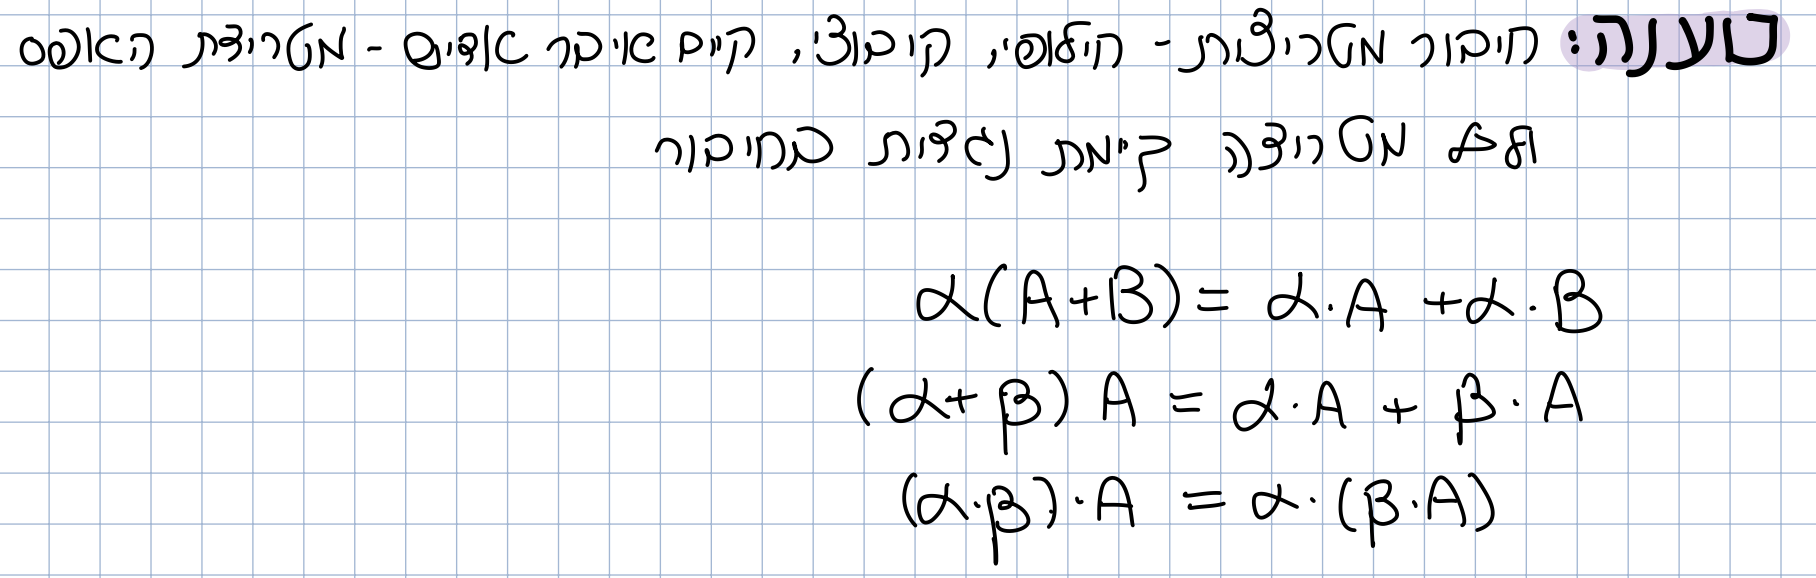 טענה: חיבור מטריצות - חילופי, קיבוצי, קיים איבר אדיש - מטריצת האפס
ולכל מטריצה קיימת נגדית בחיבור
α(A+B) = α·A + α·B
(α+β) A = α·A + β·A
(α·β)·A = α·(β·A)